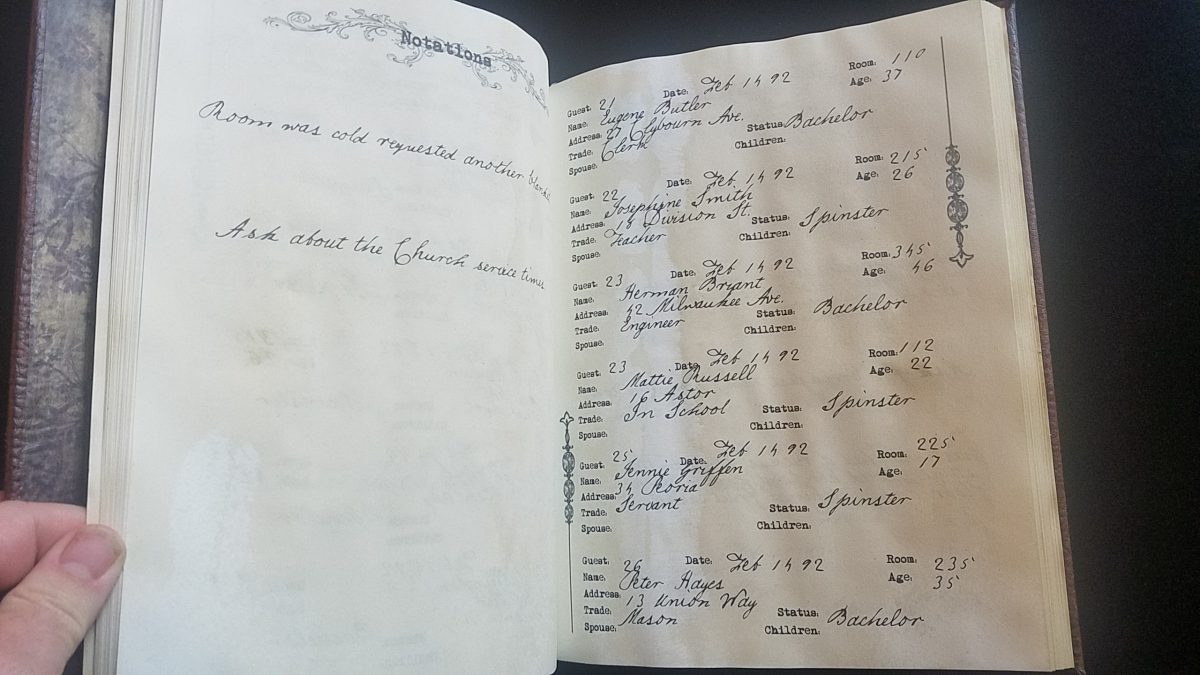 Notations
Room was cold requested another
Ask about the Church service times
Guest: 21 Date: Feb 14 92 Room: 110
Name: Eugene Butler Age: 37
Address: 27 Clybourn Ave.
Trade: Clerk Status: Bachelor
Spouse: Children:
Guest: 22 Date: Feb 14 92 Room: 215
Name: Josephine Smith Age: 26
Address: 18 Division St.
Trade: Teacher Status: Spinster
Spouse: Children:
Guest: 23 Date: Feb 14 92 Room: 345
Name: Herman Bryant Age: 46
Address: 42 Milwaukee Ave.
Trade: Engineer Status: Bachelor
Spouse: Children:
Guest: 23 Date: Feb 14 92 Room: 112
Name: Mattie Russell Age: 22
Address: 16 Astor
Trade: In School Status: Spinster
Spouse: Children:
Guest: 25 Date: Feb 14 92 Room: 225
Name: Jennie Griffen Age: 17
Address: 34 Peoria
Trade: Servant Status: Spinster
Spouse: Children:
Guest: 26 Date: Feb 14 92 Room: 235
Name: Peter Hayes Age: 35
Address: 13 Union Way
Trade: Mason Status: Bachelor
Spouse: Children: